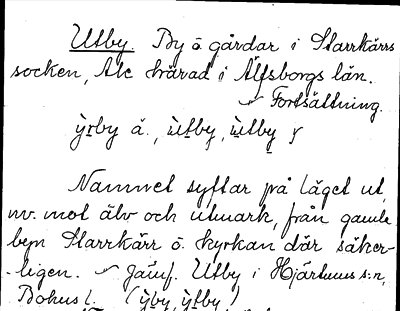 Utby. By o gårdar i Starrkärrs
socken, Ale härad i Älfsborgs län.
Fortsättning.
ỳtby å., ùtby, ùtby
Namnet syftar på läget ut,
nv. mot älv och utmark, från gamle
byn Starrkärr o. kyrkan där säker-
ligen. Jämf. Utby i Hjärtums s:n,
Bohusl. (ỳtby, ỳtby)